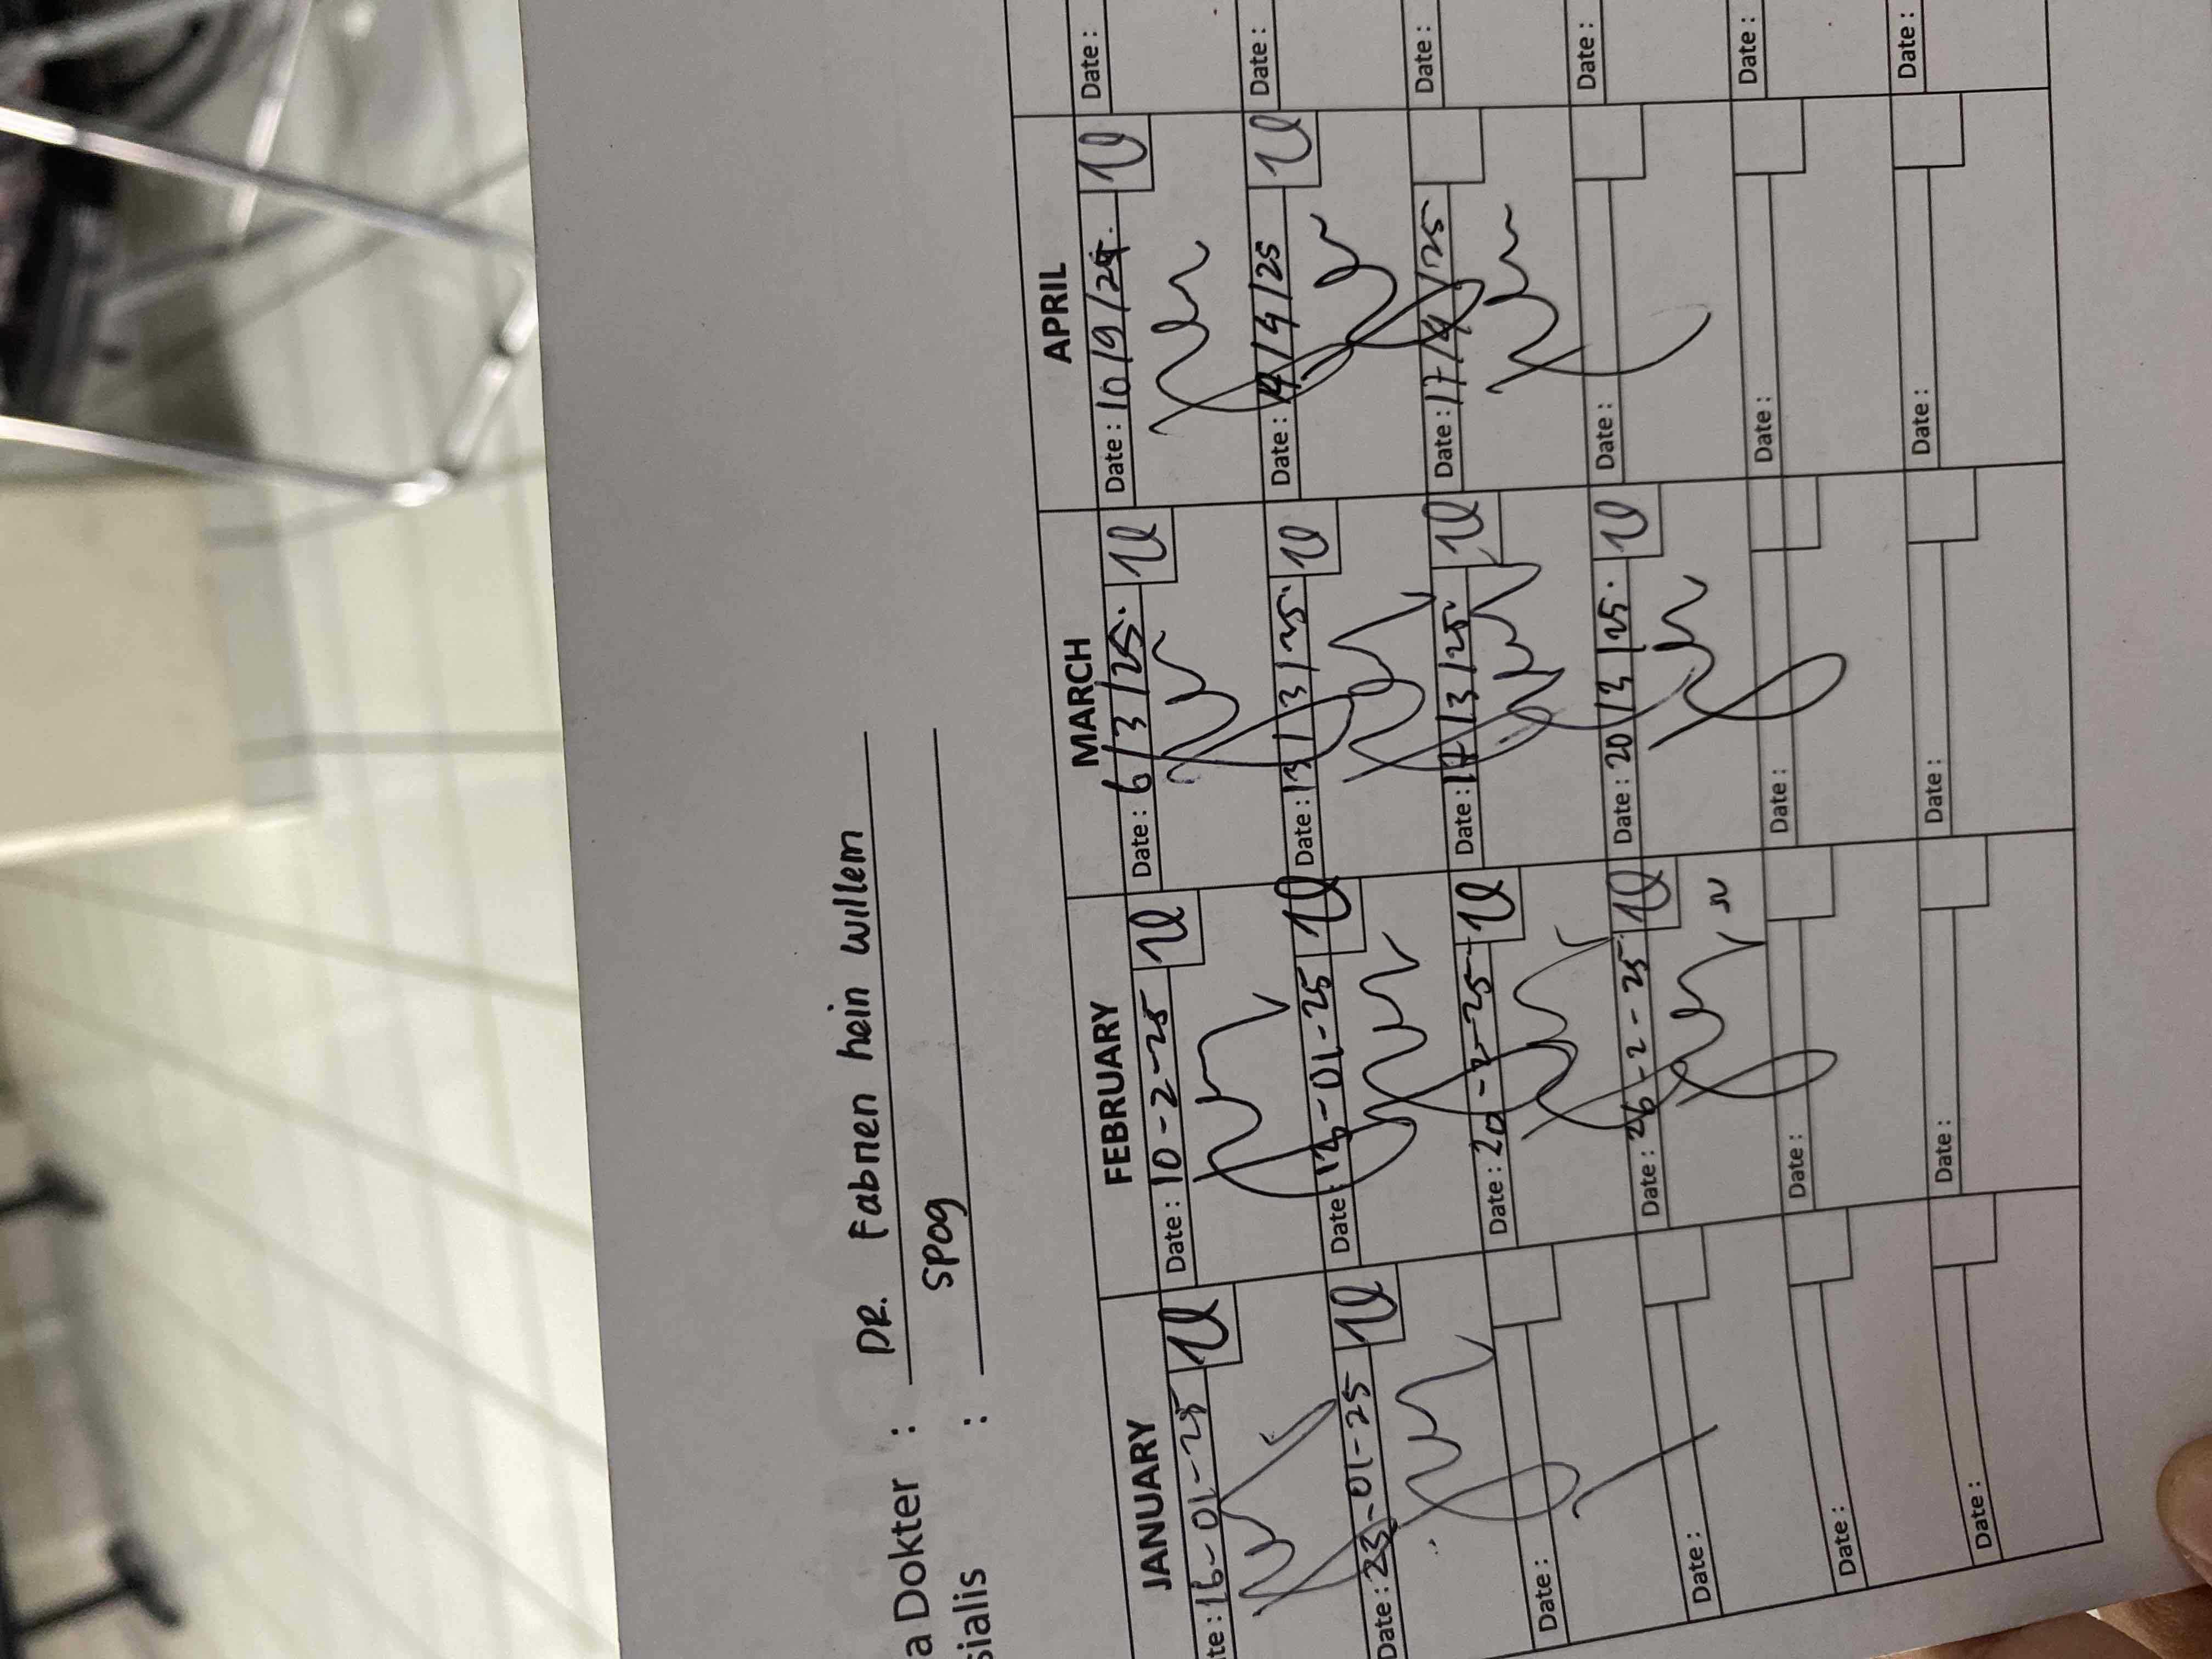 a Dokter : DR. Fabmen hein willem
sialis : SPOG
JANUARY FEBRUARY MARCH APRIL
te : 16-01-25 Date : 10-2-25 Date : 6/3/25. Date : 10/9/24. Date :
Date : 23-01-25 Date : 13-01-25 Date : 13/3/25. Date : 14/4/25 Date :
Date : Date : 20-2-25 Date : 17/3/25 Date : 17/4/25 Date :
Date : Date : 26-2-25 Date : 20/3/25. Date : Date :
Date : Date : Date : Date : Date :
Date : Date : Date : Date : Date :